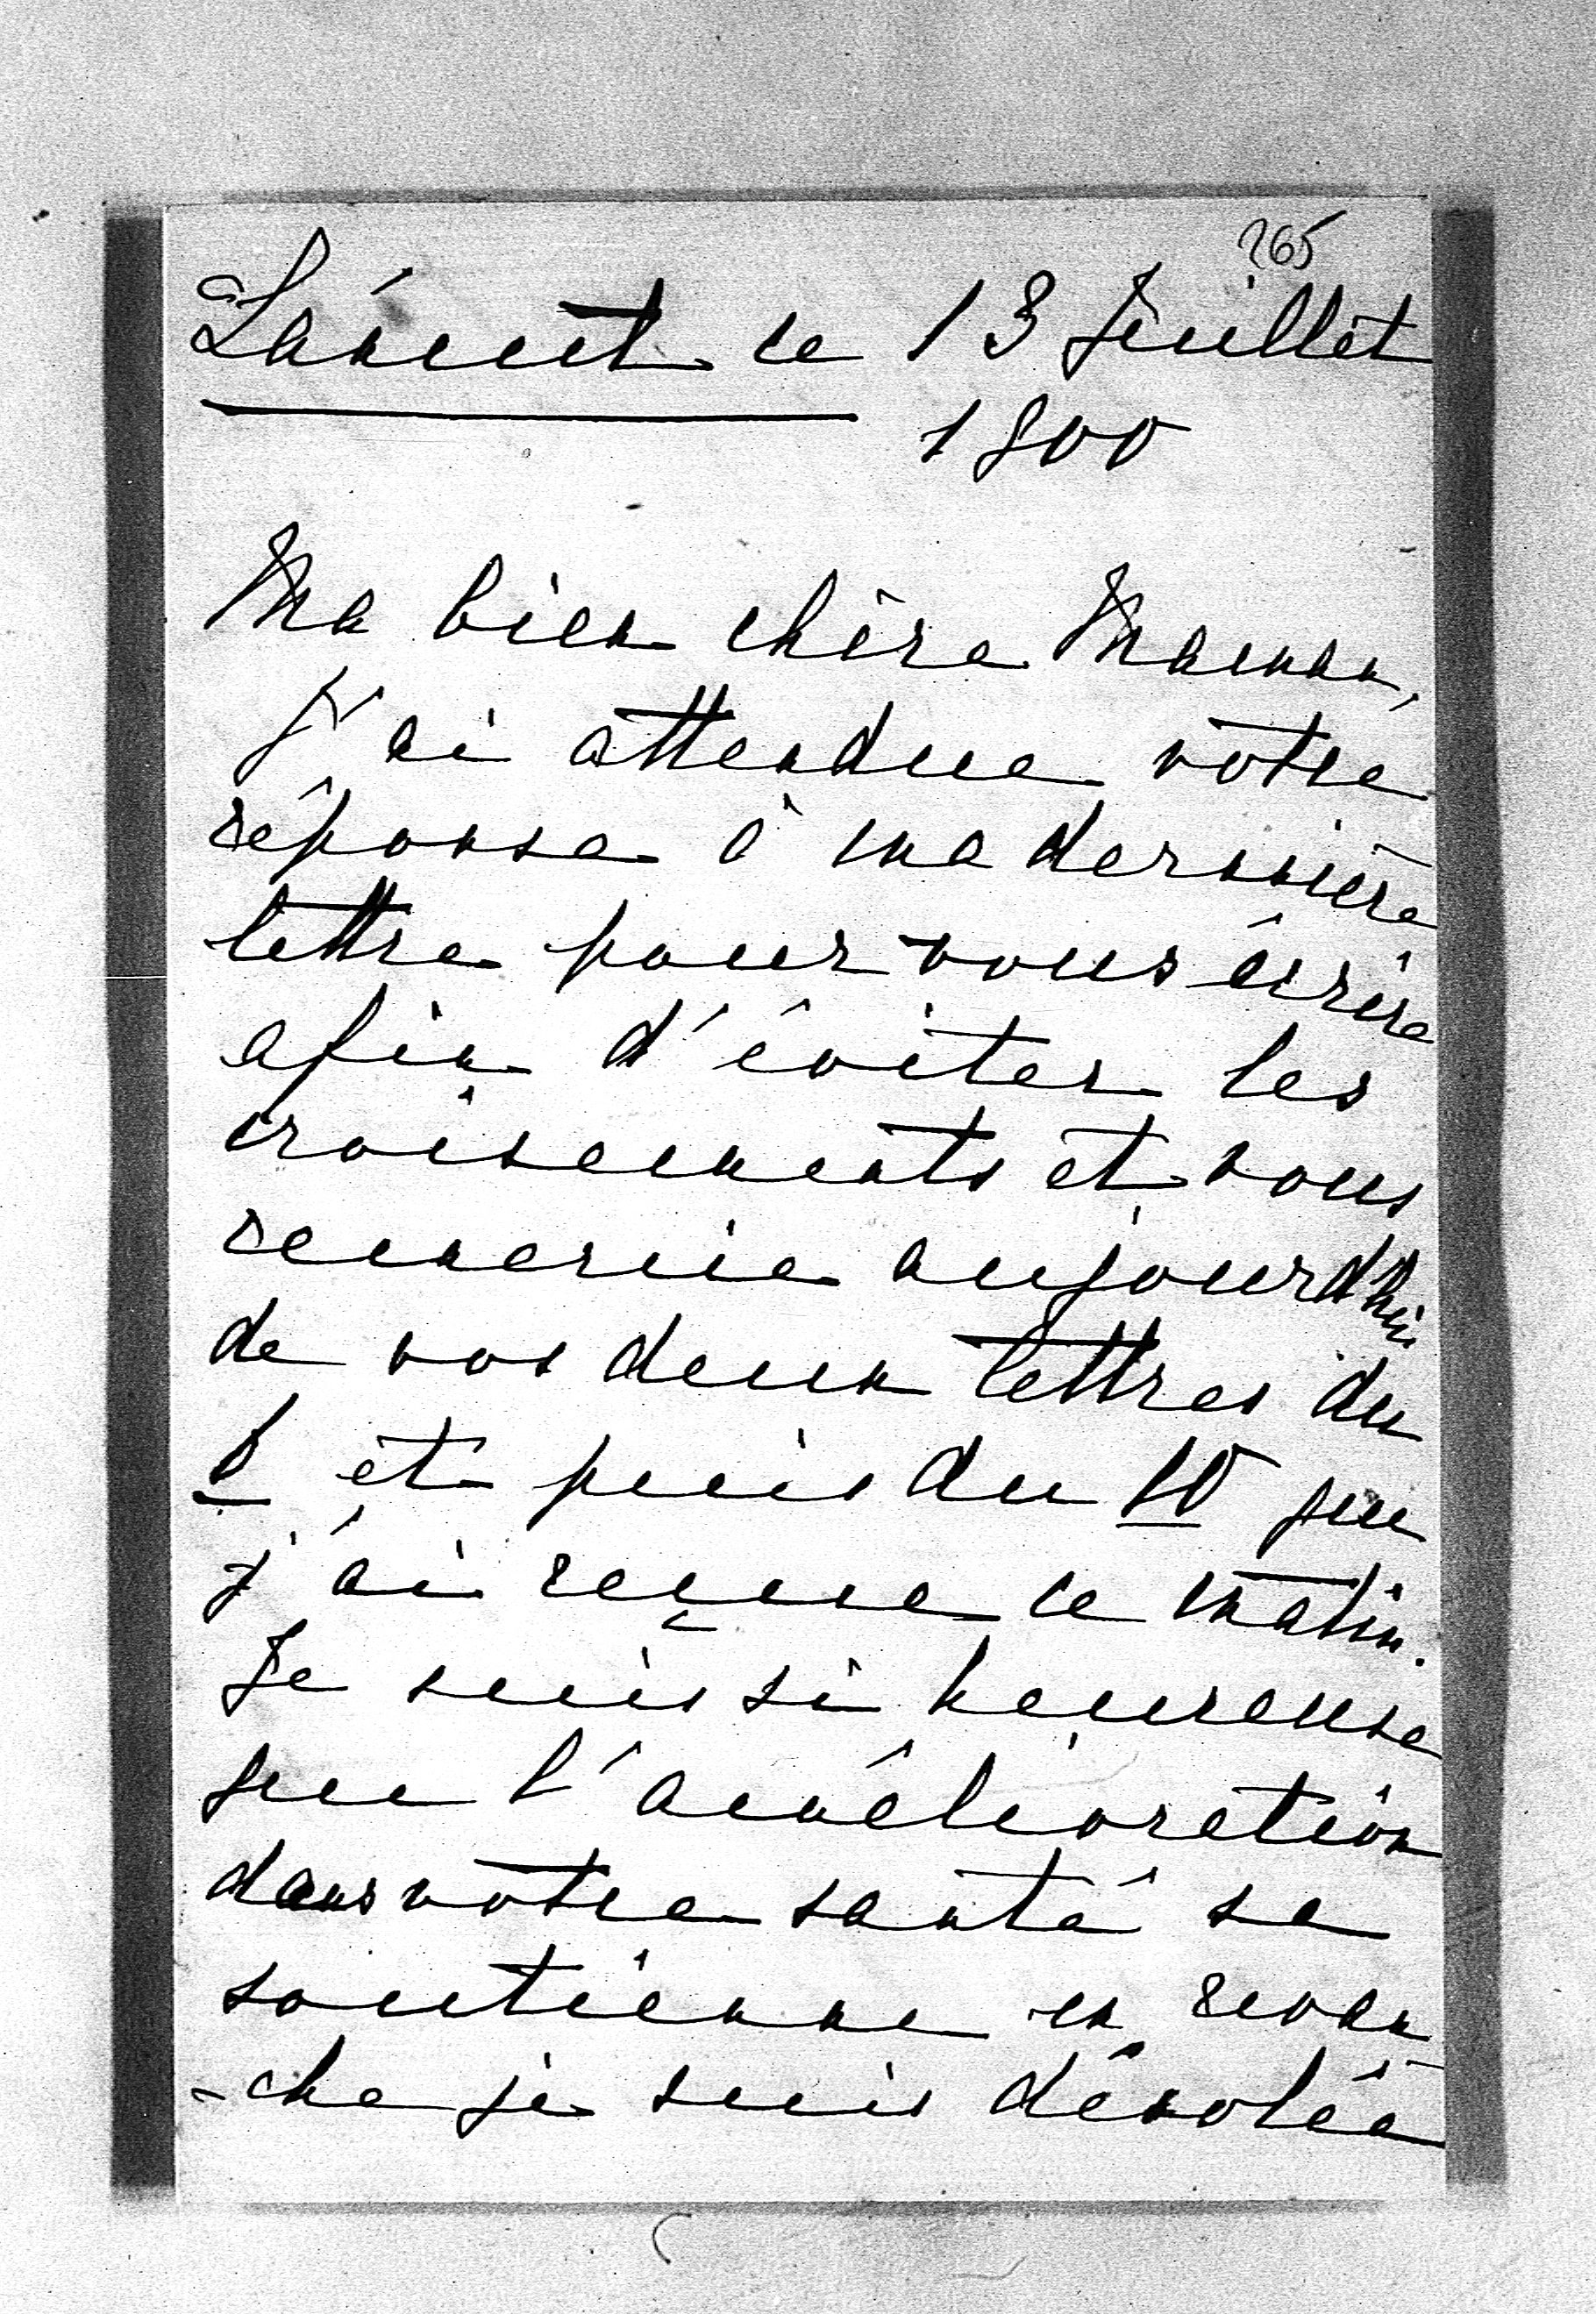 265
ce 13 Juillet
1900
Ma bien chère Maman,
J'ai attendue votre
réponse à ma dernière
lettre pour vous écrire
afin d'éviter les
croisements et vous
remercie aujourd'hui
de vos deux lettres du
et puis du 10 que
j'ai reçue ce matin.
Je suis si heureuse
que l'amélioration
dans votre santé se
soutienne en revan
-che je suis désolée